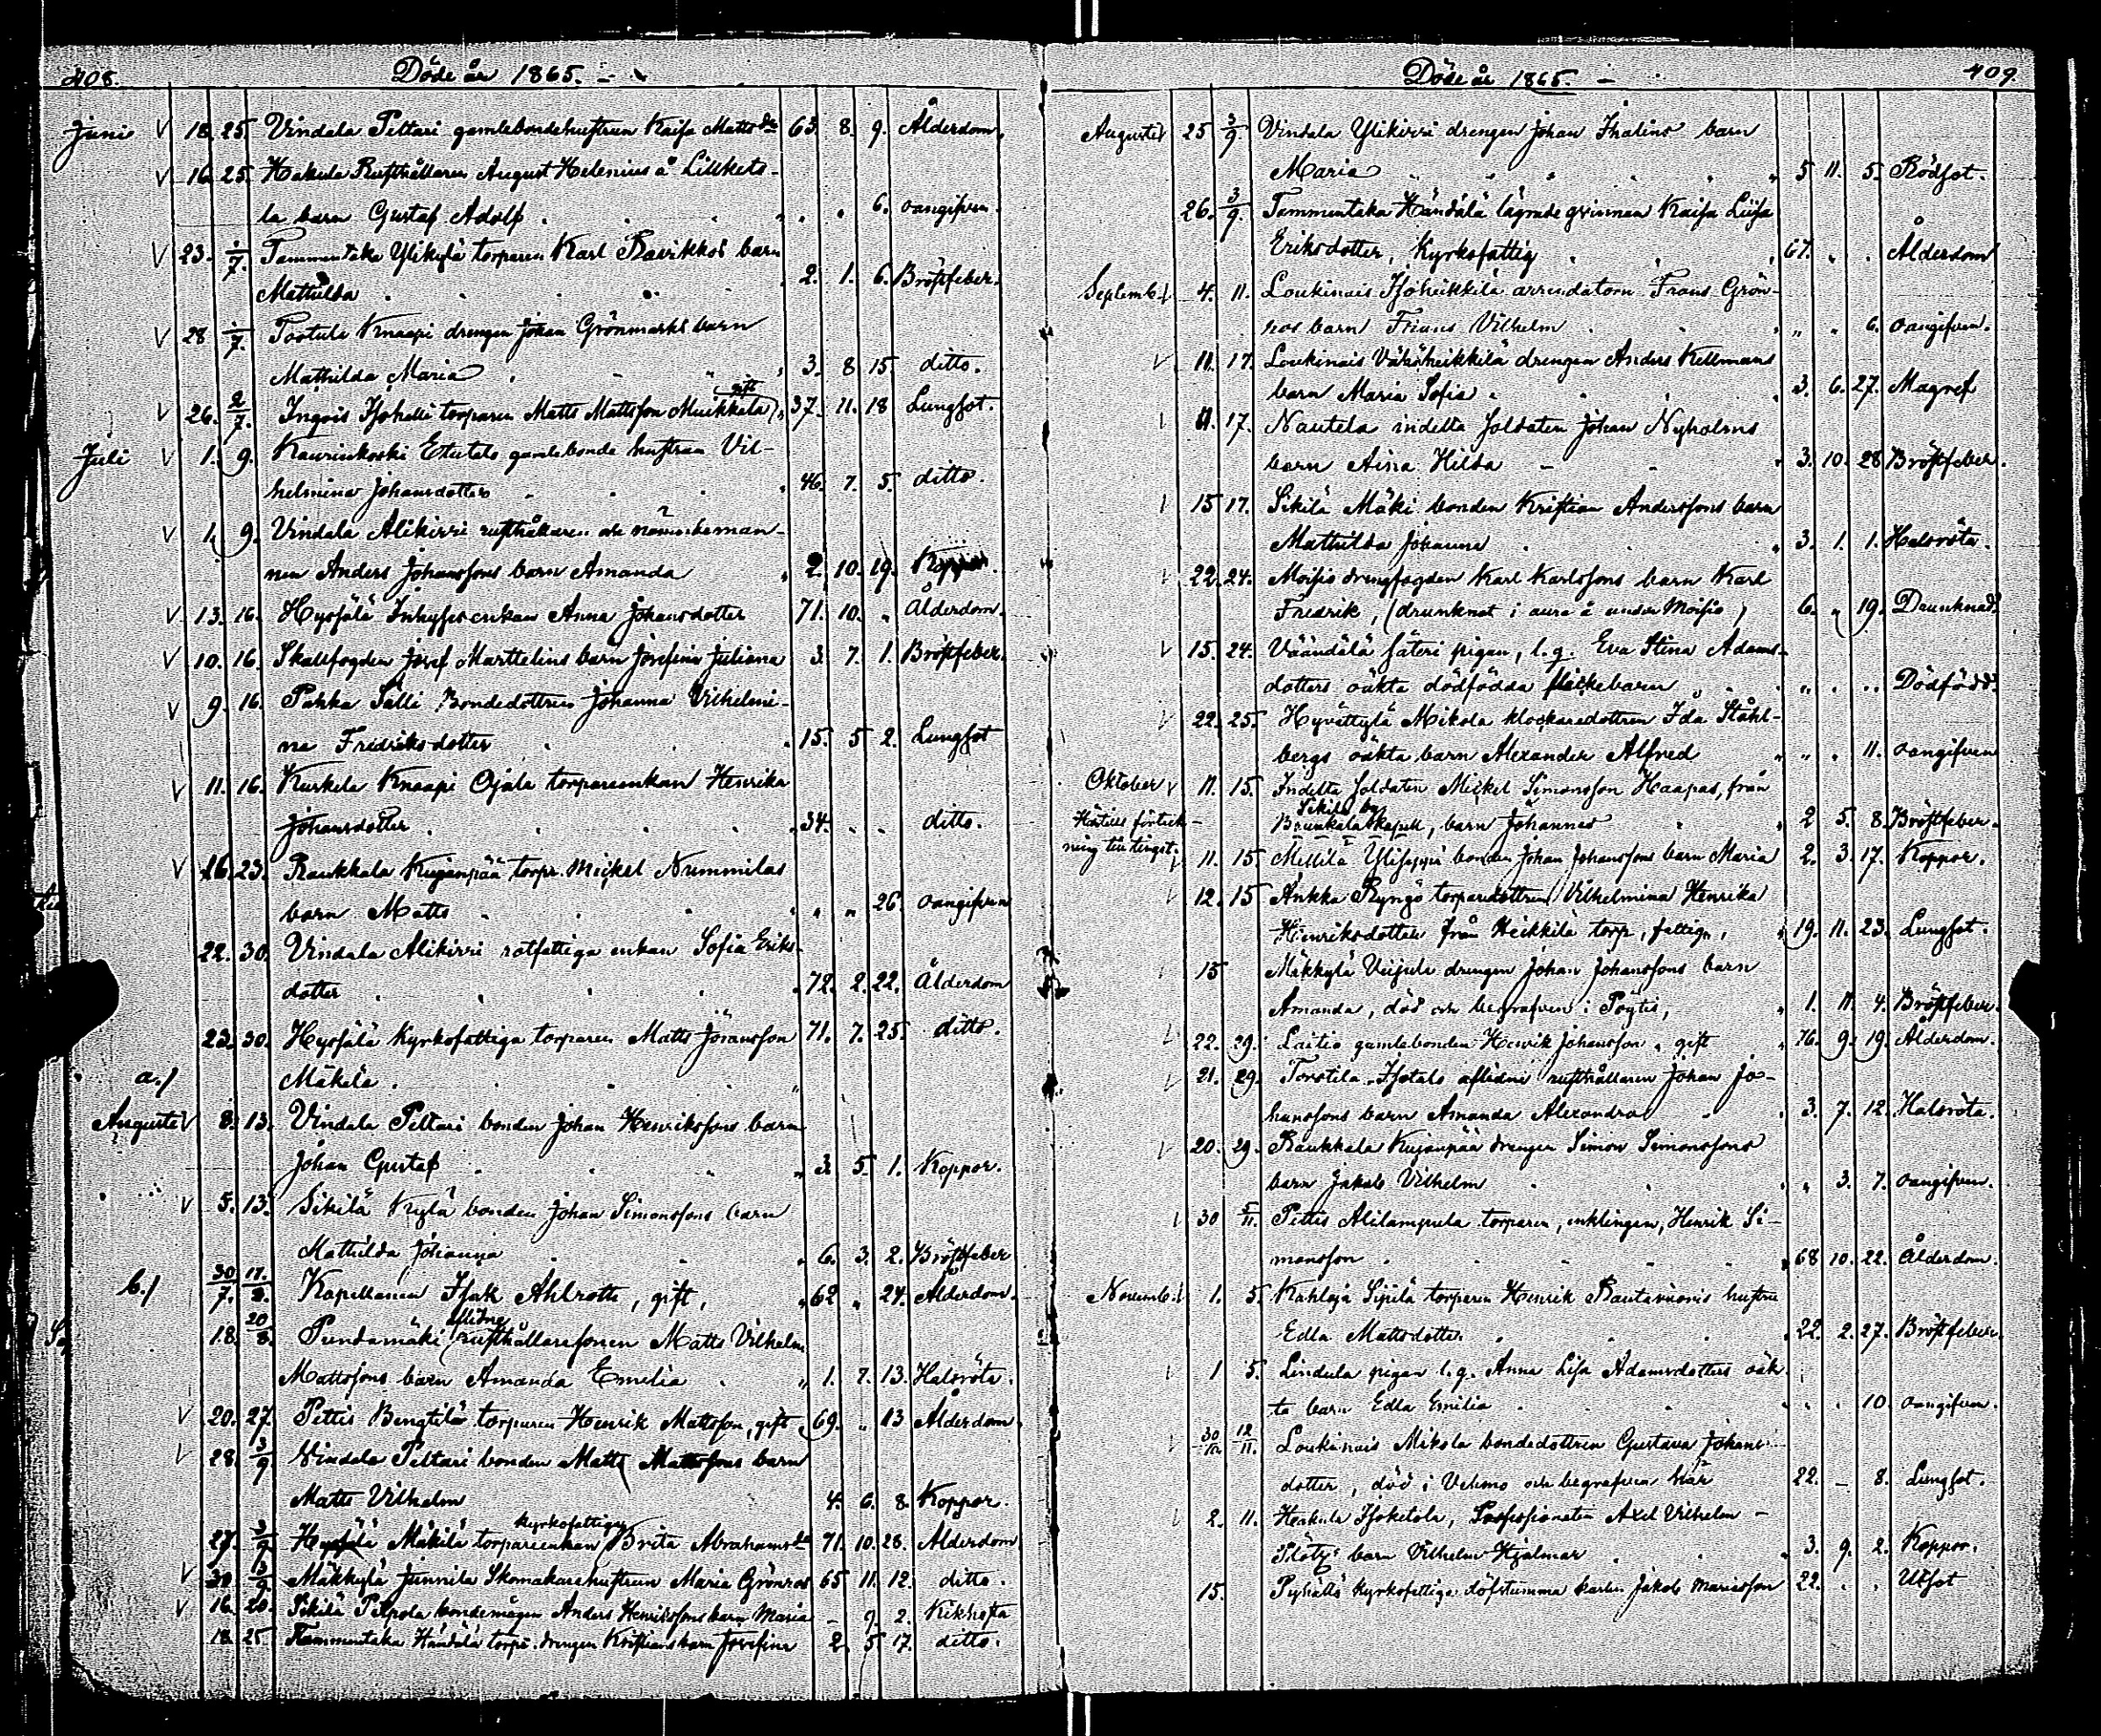 408. Döde år 1865. –
Juni V 18. 25. Vindala Peltari gamlebondehustrun Kaisa Matts dr 63. 8. 9. Ålderdom.
V 16. 25. Hakula Rusthållaren August Helenius å Lillkets-
la barn Gustaf Adolf . 6. oangifven.
V 23. 1/7. Tammentaka Ylikylä torparen Karl barn
Mathilda . 2. 1. 6. Bröstfeber.
V 28 1/7. Tortula Knaapi drengen Johan Grönmarks barn
Mathilda Maria . 3. 8 15. ditto.
V 26. 2/7. Ingois Isohelli torparen Matts Mattsson Muikkala, gift 37. 11. 18 Lungsot.
Juli V 1. 9. Kaurinkoski gamlebonde hustrun Vil-
helmina Johansdotter 46. 7. 5. ditto.
V 1. 9. Vindala Alikirri rusthållaren och nämndeman-
nen Anders Johanssons barn Amanda 2. 10. 19. Koppor.
V 13. 16. Hypsälä Inhyses enkan Anna Johansdotter 71. 10. „ Ålderdom.
V 10. 16. Skallfogden Josef Marttelins barn Josefina Juliana 3. 7. 1. Bröstfeber.
V 9. 16. Pahka Sälli Bondedottren Johanna Vilhelmi-
na Fredriksdotter 15. 5 2. Lungsot
V 11. 16. Kurkela Knaapi Ojala torpareenkan Henrika
Johansdotter . 34. „ „ ditto.
V 16. 23. Raukkala Kujanpää torpr. Mickel Nummilas
barn Matts . „ „ 26. oangifven
22. 30. Vindala Alikirri rotfattiga enkan Sofia Eriks-
dotter . 72. 2. 22. Ålderdom
23. 30. Hypsälä Kyrkofattiga torparen Matts Göransson 71. 7. 25. ditto.
a.) Mäkilä .
Augusti V 8. 13. Vindala Peltari bonden Johan Henrikssons barn
Johan Gustaf . 3. 5. 1. Koppor.
V 5. 13. Sikilä Kylä bonden Johan Simonssons barn
Mathilda Johanna 6. 3. 2. Bröstfeber
b.) 30/7. 17./8. Kapellanen Isak Ahlroth, gift, 62 „ 24. Ålderdom.
18. 20/8. Pundamäki aflidne rusthållaresonen Matts Vilhelm
Mattssons barn Amanda Emilia . 1. 7. 13. Halsröta.
V 20. 27. Pettis Bengtilä torparen Henrik Mattsson, gift 69. „ 13 Ålderdom.
V 28. 3/9. Vindala Peltari bonden Matts Mattssons barn
Matts Vilhelm 4. 6. 8. Koppor.
27. 3/9. Hypsälä Mäkilä torpareenkan kyrkofattiga Brita Abrahamsdr 71. 10. 28. Ålderdom
V 30 13/9. Mäkkylä Junnila Skomakarehustrun Maria Grönroos 65 11. 12. ditto.
V 16. 20. Sikilä Pilpola bondemågen Anders Henrikssons barn Maria – 9. 2. Kikhosta
18. 25 Tammentaka Händälä torpr. drengen Kristians barn Josefina 2. 5 17. ditto.
Döde år 1865. – 409.
Augusti 25 3/9 Vindala Ylikirri drengen Johan Thalins barn
Maria 5 11. 5. Rödsot.
26. 3/9. Tammentaka Händälä lägrade qvinnan Kaisa Liisa
Eriksdotter, Kyrkofattig . 67. „ . Ålderdom
Septemb. 4. 11. Loukinais Isoheikkilä arrendatorn Frans Grön-
roos barn Frans Vilhelm . „ „ 6. oangifven.
V 11. 17. Loukinais Vähäheikkilä drengen Anders Kellmans
barn Maria Sofia . 3. 6. 27. Magref
11. 17. Nautela indelta soldaten Johan Nyholms
barn Aina Hilda – 3. 10. 28 Bröstfeber.
15 17. Sikilä Mäki bonden Kristian Anderssons barn
Mathilda Johanna . 3. 1. 1. Halsröta.
V 22. 24. Moisio drengfogden Karl Karlssons barn Karl
Fredrik, (drunknat i aura å under Moisio) 6. „ 19. Drunknad.
V 15. 24. Väändälä säteri pigan, l. q. Eva Stina Adams-
dotters oäkta dödfödda flickebarn „ . .. Dödfödd.
V 22. 25. Hyvättylä Mikola klockaredottren Ida Ståhl-
bergs oäkta barn Alexander Alfred „ „ 11. oangifven
Oktober V 11. 15. Indelta Soldaten Mickel Simonsson Haapas, från
Sikilä by
Raunkala kapell, barn Johannes 2 5. 8. Bröstfeber.
Härtills förteck-
ning till tinget.
11. 15 Mellilä Ylisippi bonden Johan Johanssons barn Maria 2. 3. 17. Koppor.
V 12. 15 Ankka Ryngö torparedottren Vilhelmina Henrika
Henriksdotter från Heikkilä torp, fattig, 19. 11. 23. Lungsot.
15 Mäkkylä drengen Johan Johanssons barn
Amanda, död och begrafven i Pöytis, 1. 11. 4. Bröstfeber.
22. 29. Laitio gamlebonden Henrik Johansson, gift 76. 9. 19. Ålderdom.
V 21. 29. Torstila Isotalo aflidne rusthållaren Johan Jo-
hanssons barn Amanda Alexandra 3. 7. 12. Halsröta.
V 20. 29. Raukkala Kujanpää drengen Simon Simonssons
barn Jakob Vilhelm „ 3. 7. oangifven.
30 5/11. Pettis Alilampula torparen, enklingen, Henrik Si-
monsson . 68 10. 22. Ålderdom.
Novemb. 1. 5. Kahloja Sipilä torparen Henrik Rautavuoris hustru
Edla Mattsdotter . 22. 2. 27. Bröstfeber
1 5. Lindula pigan l. q. Anna Lisa Adamsdotters oäk-
ta barn Edla Emilia . „ . 10 oangifven.
30/10. 12/11. Loukinais Mikola bondedottren Gustava Johans-
dotter, död i Vehmo och begrafven här 22. – 8. Lungsot.
2. 11. Hakula Isoketola, Possessionaten Axel Vilhelm –
Plötz' barn Vilhelm Hjalmar . 3. 9. 2. Koppor.
15. kyrkofattiga döfstumma karlen Jakob Mariasson 22. . . Utsot